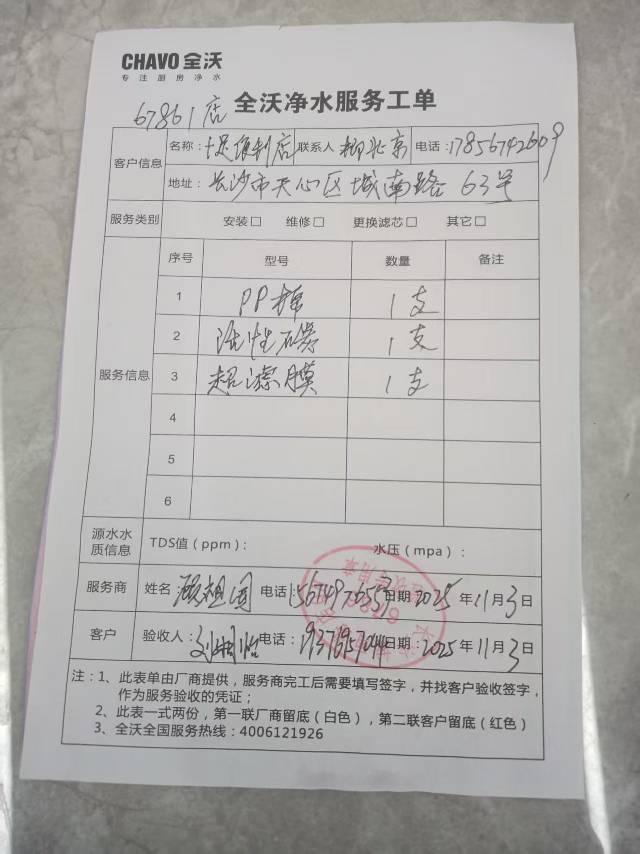 CHAVO 全沃
专注厨房净水
67861店
全沃净水服务工单
客户信息 名称: 便利店 联系人 柳北京 电话: 17856742609
地址: 长沙市天心区城南路 63号
服务类别 安装□ 维修□ 更换滤芯□ 其它□
服务信息
序号 型号 数量 备注
1 PP棉 1支
2 活性石炭 1支
3 超滤膜 1支
4
5
6
源水水质信息 TDS值(ppm): 水压(mpa):
服务商 姓名: 电话: 日期 2025年11月3日
客户 验收人: 电话: 日期: 2025年11月3日
注:1、此表单由厂商提供,服务商完工后需要填写签字,并找客户验收签字,
作为服务验收的凭证;
2、此表一式两份,第一联厂商留底(白色),第二联客户留底(红色)
3、全沃全国服务热线:4006121926